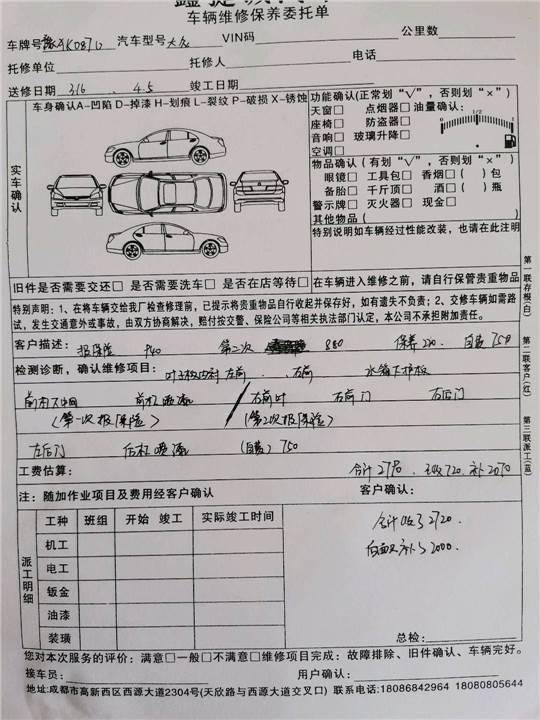 车辆维修保养委托单
车牌号 汽车型号 大众 VIN码 公里数
托修单位 托修人 电话
送修日期 3/6 4.5 竣工日期
车身确认A-凹陷 D-掉漆 H-划痕 L-裂纹 P-破损 X-锈蚀
功能确认(正常划“√”，否则划“×”)
天窗□ 点烟器□ 油量确认：
座椅□ 防盗器□ 1/2
音响□ 玻璃升降□
空调□
实车确认
物品确认（有划“√”，否则划“×”）
眼镜□ 工具包□ 香烟□（ ）包
备胎□ 千斤顶□ 酒□（ ）瓶
警示牌□ 灭火器□ 现金□
其他物品（ ）
特别说明如车辆经过性能改装，也请在此注明
旧件是否需要交还□ 是否需要洗车□ 是否在店等待□ 在车辆进入维修之前，请自行保管贵重物品
特别声明：1、在将车辆交给我厂检查修理前，已提示将贵重物品自行收起并保存好，如有遗失不负责；2、交修车辆如需路
试，发生交通意外或事故，由双方协商解决，赔付按交警、保险公司等相关执法部门认定，本公司不承担附加责任。
第一联存根(白) 第二联客户(红) 第三联派工(蓝)
客户描述： 报保险 940 第二次 880 保养 220 自装 750
检测诊断，确认维修项目： 叶子板内衬 左前 、右前 水箱下护板
前机喷漆 右前叶 右前门 右后门
(第一次报保险) (第二次报保险)
左后门 后机喷漆 (自装) 750
工费估算： 合计 2790. 已收720. 补2070
注：随加作业项目及费用经客户确认 客户确认：
派工明细
工种 班组 开始 竣工 实际竣工时间
机工
电工
钣金
油漆
装璜
合计收了2720.
后面又补了2000.
总检：
您对本次服务的评价：满意□一般□不满意□维修项目完成：故障排除、旧件确认、车辆完好。
接车员： 用户确认：
地址:成都市高新西区西源大道2304号(天欣路与西源大道交叉口) 联系电话:18086842964 18080805644